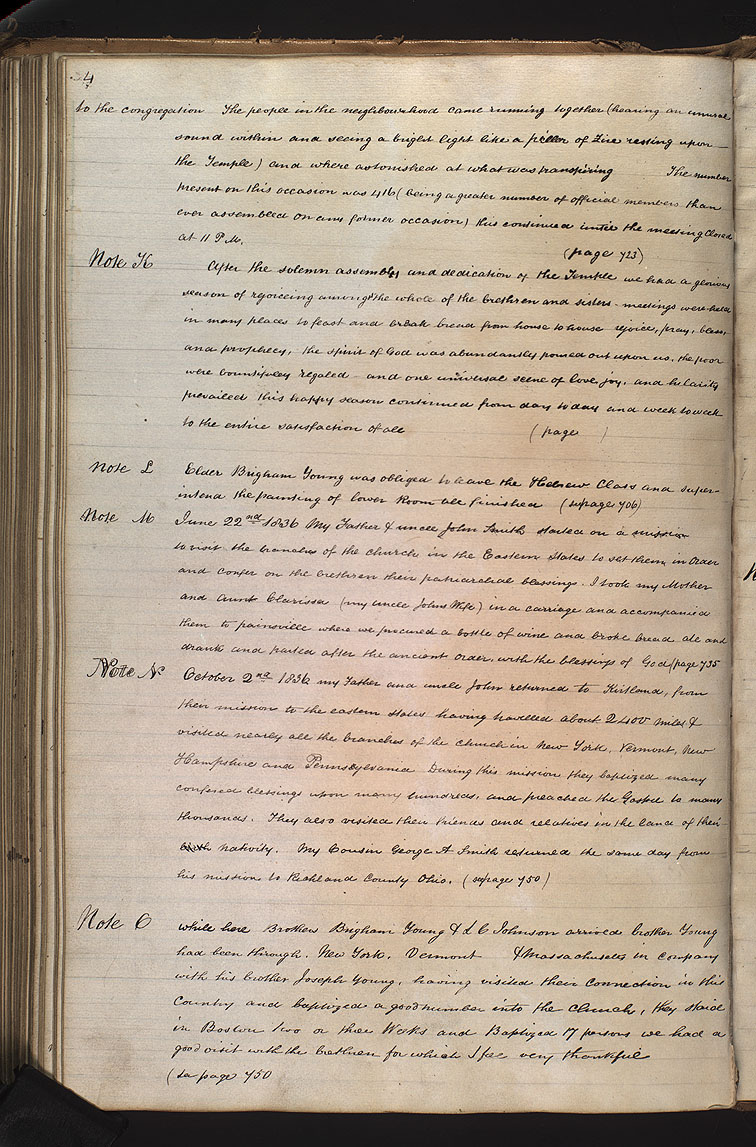 4
to the congregation The people in the neighbourhood came running together (hearing an unusual
sound within and seeing a bright light like a pillor of Fire resting upon
the Temple) and where astonished at what was transpiring The number
present on this occasion was 416 (being a greater number of official members than
ever assembled on any former occasion) this continued until the meeting closed
at 11 P.M. (page 723)
Note K After the solemn assembly and dedication of the Temple we had a glorious
season of rejoicing amongst the whole of the brethren and sisters - meetings were held
in many places to feast and break bread from house to house rejoice, pray, bless,
and prophecy, the spirit of God was abundantly poured out upon us, the poor
were bountifuly regaled - and one universal scene of love, joy, and hilarity
prevailed this happy season continued from day to day and week to week
to the entire satisfaction of all (page )
Note L Elder Brigham Young was obliged to leave the Hebrew Class and super-
intend the painting of lower Room till finished (page 706)
Note M June 22nd 1836 My Father & uncle John Smith started on a mission
to visit the branches of the church in the Eastern States to set them in order
and confer on the brethren their patriarchial blessings. I took my Mother
and Aunt Clarissa (my uncle Johns Wife) in a carriage and accompanied
them to painsville where we procured a bottle of wine and broke bread ate and
drank and parted after the ancient order, with the blessings of God (page 735
Note N October 2nd 1836 my Father and uncle John returned to Kirtland, from
their mission to the eastern States having travelled about 2400 miles &
visited nearly all the branches of the church in New York, Vermont, New
Hampshire and Pennsylvania During this mission they baptized many
confered blessings upon many hundreds, and preached the Gospel to many
thousands. They also visited their friends and relatives in the land of their
birth nativity. My Cousin George A Smith returned the same day from
his mission to Richland County Ohio. (page 750)
Note O while here Brothers Brigham Young & L C Johnson arrived brother Young
had been through. New York. Vermont & Massachusetts in company
with his brother Joseph Young, having visited their connection in this
Country and baptized a good number into the church, they staid
in Boston two or three Weeks and Baptized 17 persons we had a
good visit with the brethren for which I fee very thankful
(page 750